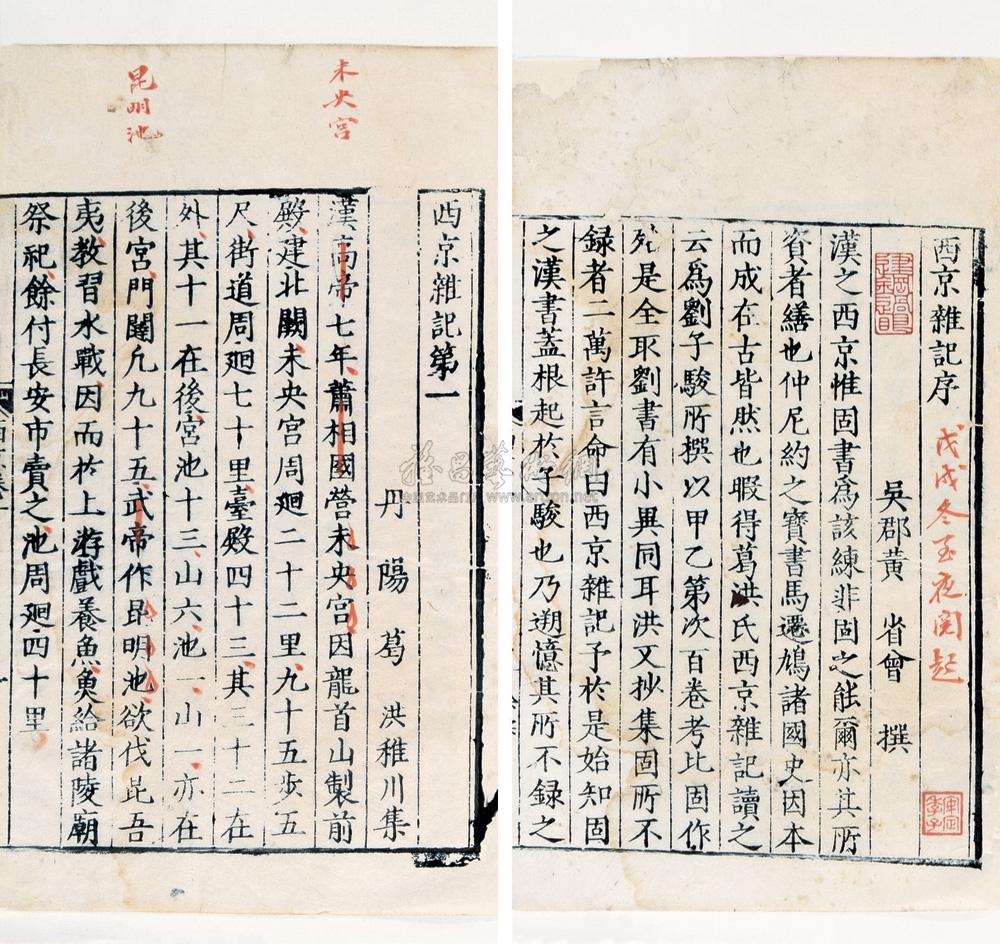 西京雜記序
戊戌冬至夜閱起
吳郡黃省曾撰
漢之西京惟固書爲該練非固之能爾亦其所
資者繕也仲尼約之寶書馬遷鳩諸國史因本
而成在古皆然也暇得葛洪氏西京雜記讀之
云爲劉子駿所撰以甲乙第次百卷考比固作
殆是全取劉書有小異同耳洪又抄集固所不
録者二萬許言命曰西京雜記予於是始知固
之漢書蓋根起於子駿也乃遡憶其所不録之
未央宮
昆明池
西京雜記第一
丹陽葛洪稚川集
漢高帝七年蕭相國營未央宮因龍首山製前
殿建北闕未央宮周廻二十二里九十五步五
尺街道周廻七十里臺殿四十三其三十二在
外其十一在後宮池十三山六池一山一亦在
後宮門闥凡九十五武帝作昆明池欲伐昆吾
夷教習水戰因而於上游戲養魚魚給諸陵廟
祭祀餘付長安市賣之池周廻四十里